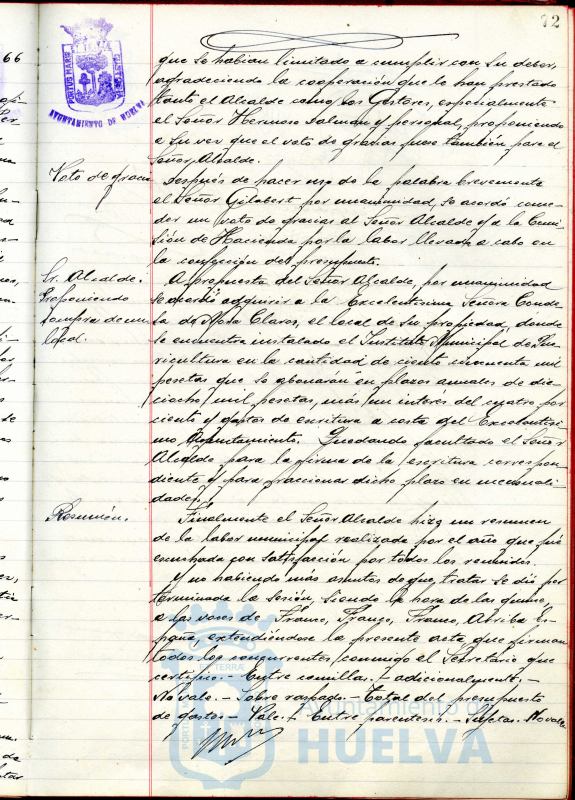 72
66
PORTUS MARIS
AYUNTAMIENTO DE HUELVA
que se habian limitado a cumplir con su deber,
agradeciendo la cooperación que le han prestado
tanto el Alcalde como los Gestores, especialmente
el Señor Hermoso Salman y personal, proponiendo
a su vez que el voto de gracias fuese también para el
Señor Alcalde.
Voto de gracia
Después de hacer uso de la palabra brevemente
el Señor Gilabert por unanimidad, se acordó conce-
der un voto de gracias al Señor Alcalde y a la Comi-
sión de Hacienda por la labor llevada a cabo en
la confección del presupuesto.
Sr. Alcalde.
Proponiendo
compra de un
local.
A propuesta del Señor Alcalde, por unanimidad
se acordó adquirir a la Excelentisima Señora Conde
sa de Mora Claros, el local de su propiedad, donde
se encuentra instalado el Instituto Municipal de Pue
ricultura en la cantidad de ciento cincuenta mil
pesetas que se abonarán en plazos anuales de die
ciocho mil pesetas, más un interés del cuatro por
ciento y gastos de escritura a costa del Excelentisi
mo Ayuntamiento. Quedando facultado el Señor
Alcalde para la firma de la escritura correspon-
diente y para fraccionar dicho plazo en mensuali-
dades.
Resumen.
Finalmente el Señor Alcalde hizo un resumen
de la labor municipal realizada por el año que fué
escuchada con satisfacción por todos los reunidos.
Y no habiendo más asuntos de que tratar se dió por
terminada la sesión, siendo la hora de las quince,
a las voces de Franco, Franco, Franco, Arriba Es-
paña, extendiéndose la presente acta que firman
todos los concurrentes conmigo el Secretario que
certifico.- Entre comillas.- adicionalmente.-
No vale.- Sobre raspado.- Total del presupuesto
de gastos.- Vale.- Entre parentesis.- Sujetas.- No vale.
Ayuntamiento de
HUELVA